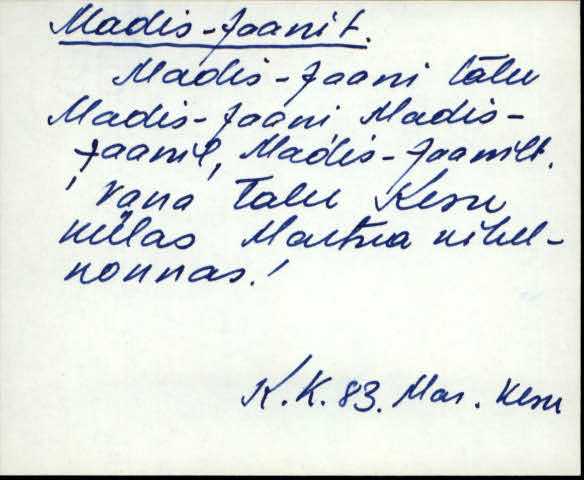 Madis-Jaani t.
Madis-Jaani talu
Madis-Jaani Madis-
Jaanil, Madis-Jaanilt.
' Vana talu Kesu
külas Martna kihel-
konnas.'
K.K. 83. Mar. Kesu